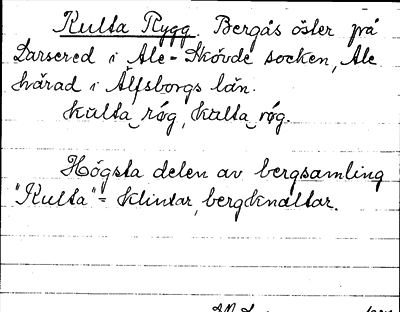 Kulta Rygg. Bergås öster på
Darsered i Ale-Skövde socken, Ale
härad i Älfsborgs län.
kulta røg, kulta røg.
Högsta delen av bergsamling
"Kulta" = klintar, bergknaltar.